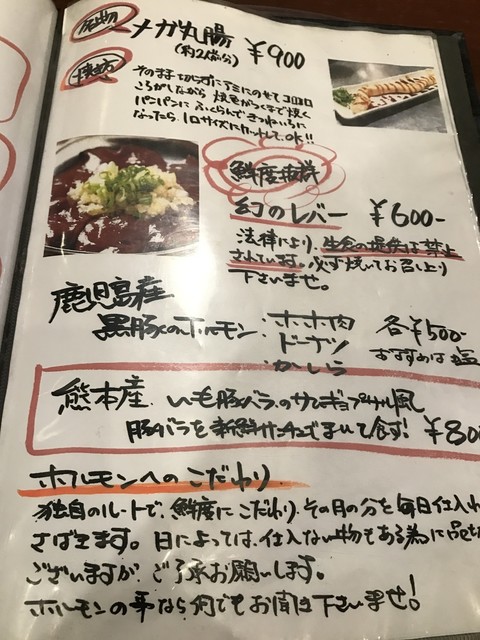 名物 メガ丸腸
(約2人前分) ¥900
焼き方
そのまま切らずにアミにのせてコロコロ
ころがしながら 焼色がつくまで焼く
パンパンに ふくらんで きつねいろに
なったら、1口サイズにカットして、OK!!
鮮度
幻のレバー ¥600-
法律により、生食の提供は禁止
されています。必ず焼いてお召し上り
下さいませ。
鹿児島産
黒豚のホルモン:ホホ肉
ドーナツ
かしら
各¥500-
おすすめは塩
熊本産、いも豚バラ、のサムギョプサル風
豚バラを新鮮サンチュでまいて食す!
ホルモンへのこだわり
独自のルートで、鮮度にこだわり、その日の分を毎日仕入れ
さばきます。日によっては、仕入ない物もある為に品切
ございますが、ご了承お願いします。
ホルモンの事なら何でもお聞き下さいませ!